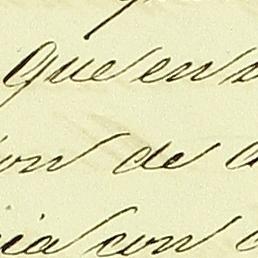 que en
on de
cia con